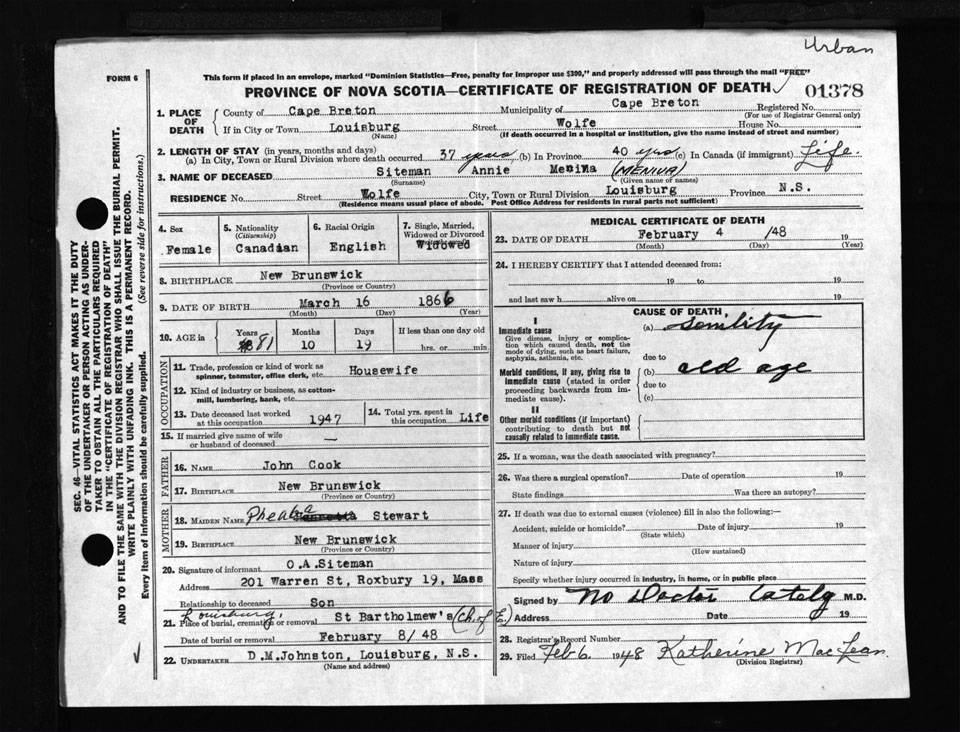 Urban
FORM 6
This form if placed in an envelope, marked "Dominion Statistics—Free, penalty for improper use $300," and properly addressed will pass through the mail "FREE"
PROVINCE OF NOVA SCOTIA—CERTIFICATE OF REGISTRATION OF DEATH 01378
1. PLACE OF DEATH County of Cape Breton Municipality of Cape Breton Registered No.
(For use of Registrar General only)
If in City or Town Louisburg Street Wolfe House No.
(Name) (If death occurred in a hospital or institution, give the name instead of street and number)
2. LENGTH OF STAY (in years, months and days)
(a) In City, Town or Rural Division where death occurred 37 years (b) In Province 40 yrs (c) In Canada (if immigrant) Life.
3. NAME OF DECEASED Siteman Annie (MENIVA)
(Surname) (Given name or names)
RESIDENCE No. Street Wolfe City, Town or Rural Division Louisburg Province N.S.
(Residence means usual place of abode. Post Office Address for residents in rural parts not sufficient)
4. Sex Female
5. Nationality (Citizenship) Canadian
6. Racial Origin English
7. Single, Married, Widowed or Divorced Widowed
8. BIRTHPLACE New Brunswick
(Province or Country)
9. DATE OF BIRTH March 16 1866
(Month) (Day) (Year)
10. AGE in Years 81 Months 10 Days 19 If less than one day old hrs. or min.
OCCUPATION
11. Trade, profession or kind of work as spinner, teamster, office clerk, etc. Housewife
12. Kind of industry or business, as cotton-mill, lumbering, bank, etc.
13. Date deceased last worked at this occupation 1947
14. Total yrs. spent in this occupation Life
15. If married give name of wife or husband of deceased —
FATHER
16. NAME John Cook
17. BIRTHPLACE New Brunswick
(Province or Country)
MOTHER
18. MAIDEN NAME Stewart
19. BIRTHPLACE New Brunswick
(Province or Country)
20. Signature of informant O.A.Siteman
Address 201 Warren St, Roxbury 19, Mass
Relationship to deceased Son
Louisburg,
21. Place of burial, cremation or removal St Bartholmew's (Ch. of E.)
Date of burial or removal February 8/48
22. UNDERTAKER D.M.Johnston, Louisburg, N.S.
(Name and address)
MEDICAL CERTIFICATE OF DEATH
23. DATE OF DEATH February 4 /48 19
(Month) (Day) (Year)
24. I HEREBY CERTIFY that I attended deceased from:
19 to 19
and last saw h alive on 19
CAUSE OF DEATH
I
Immediate cause
Give disease, injury or complication which caused death, not the mode of dying, such as heart failure, asphyxia, asthenia, etc.
(a)
due to
Morbid conditions, if any, giving rise to immediate cause (stated in order proceeding backwards from immediate cause).
(b) old age
due to
(c)
II
Other morbid conditions (if important) contributing to death but not causally related to immediate cause.
25. If a woman, was the death associated with pregnancy?
26. Was there a surgical operation? Date of operation 19
State findings Was there an autopsy?
27. If death was due to external causes (violence) fill in also the following:—
Accident, suicide or homicide? Date of injury 19
(State which)
Manner of injury
(How sustained)
Nature of injury
Specify whether injury occurred in industry, in home, or in public place
Signed by No Doctor M.D.
Address Date 19
28. Registrar's Record Number
29. Filed Feb 6 1948 Katherine MacLean
(Division Registrar)
SEC. 46—VITAL STATISTICS ACT MAKES IT THE DUTY
OF THE UNDERTAKER OR PERSON ACTING AS UNDER-
TAKER TO OBTAIN ALL THE PARTICULARS REQUIRED
IN THE "CERTIFICATE OF REGISTRATION OF DEATH"
AND TO FILE THE SAME WITH THE DIVISION REGISTRAR WHO SHALL ISSUE THE BURIAL PERMIT.
WRITE PLAINLY WITH UNFADING INK. THIS IS A PERMANENT RECORD.
Every item of information should be carefully supplied. (See reverse side for instructions.)